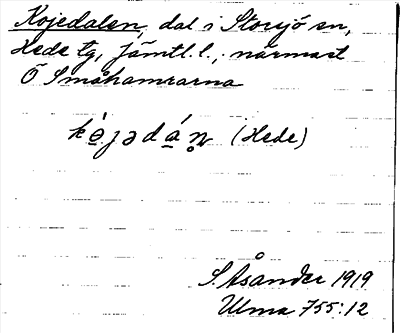 Kojedalen, dal i Storsjö sn,
Hede tg, Jämtl. l., närmast
Ö Småhamrarna
(Hede)
S. Åsander 1919
Ulma 755:12